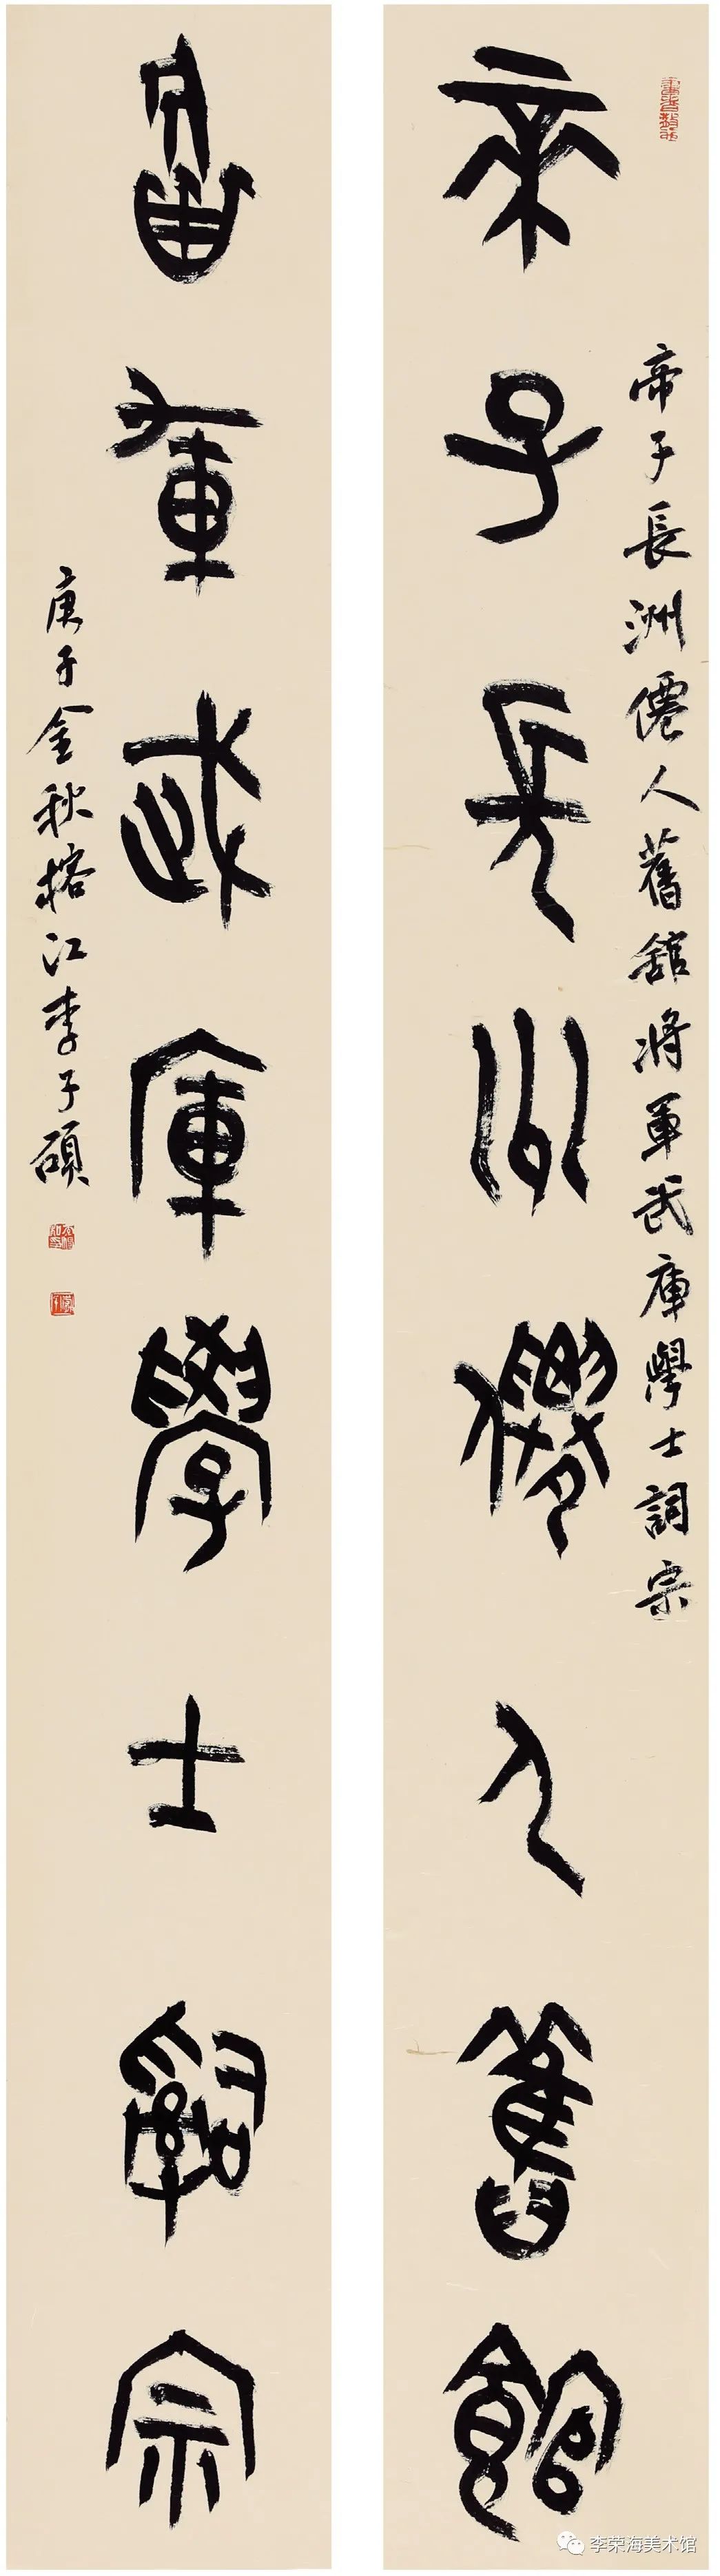 帝子長洲僊人舊舘將軍武庫學士詞宗
帝子長洲僊人舊館
將軍武庫學士詞宗
庚子金秋榕江李子碩
李荣海美术馆